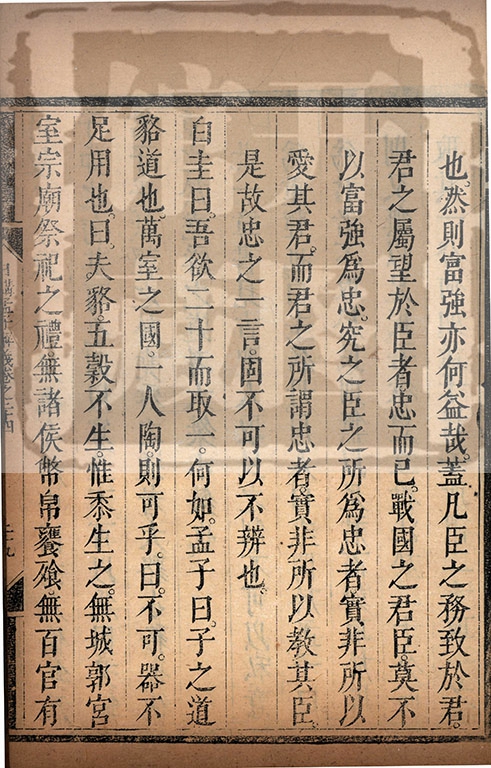 也。然則富強亦何益哉。蓋凡臣之務致於君。
君之屬望於臣者。忠而已。戰國之君臣。莫不
以富強為忠。究之臣之所為忠者。實非所以
愛其君。而君之所謂忠者。實非所以教其臣。
是故忠之一言。固不可以不辨也。
白圭曰。吾欲二十而取一。何如。孟子曰。子之道
貉道也。萬室之國。一人陶。則可乎。曰。不可。器不
足用也。曰。夫貉。五穀不生。惟黍生之。無城郭宮
室宗廟祭祀之禮。無諸侯幣帛饔飱。無百官有